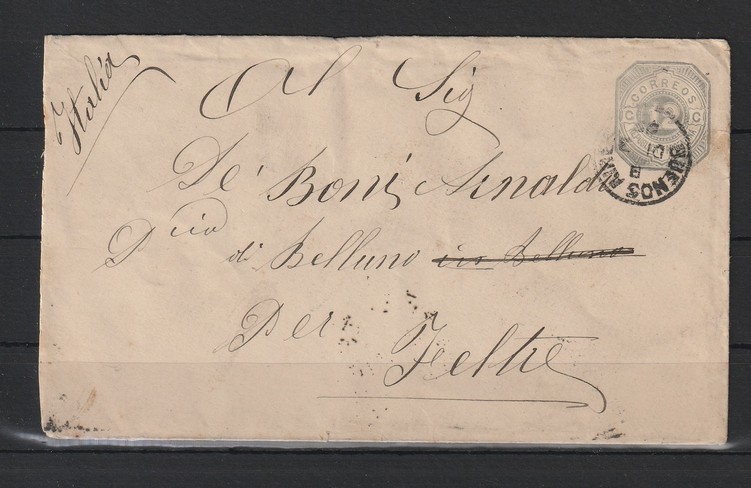 Italia
Al Sig
De Boni Arnaldo
Dcio
di Belluno in Belluno
Per Feltre
CORREOS
C C
BUENOS AI
DI
B